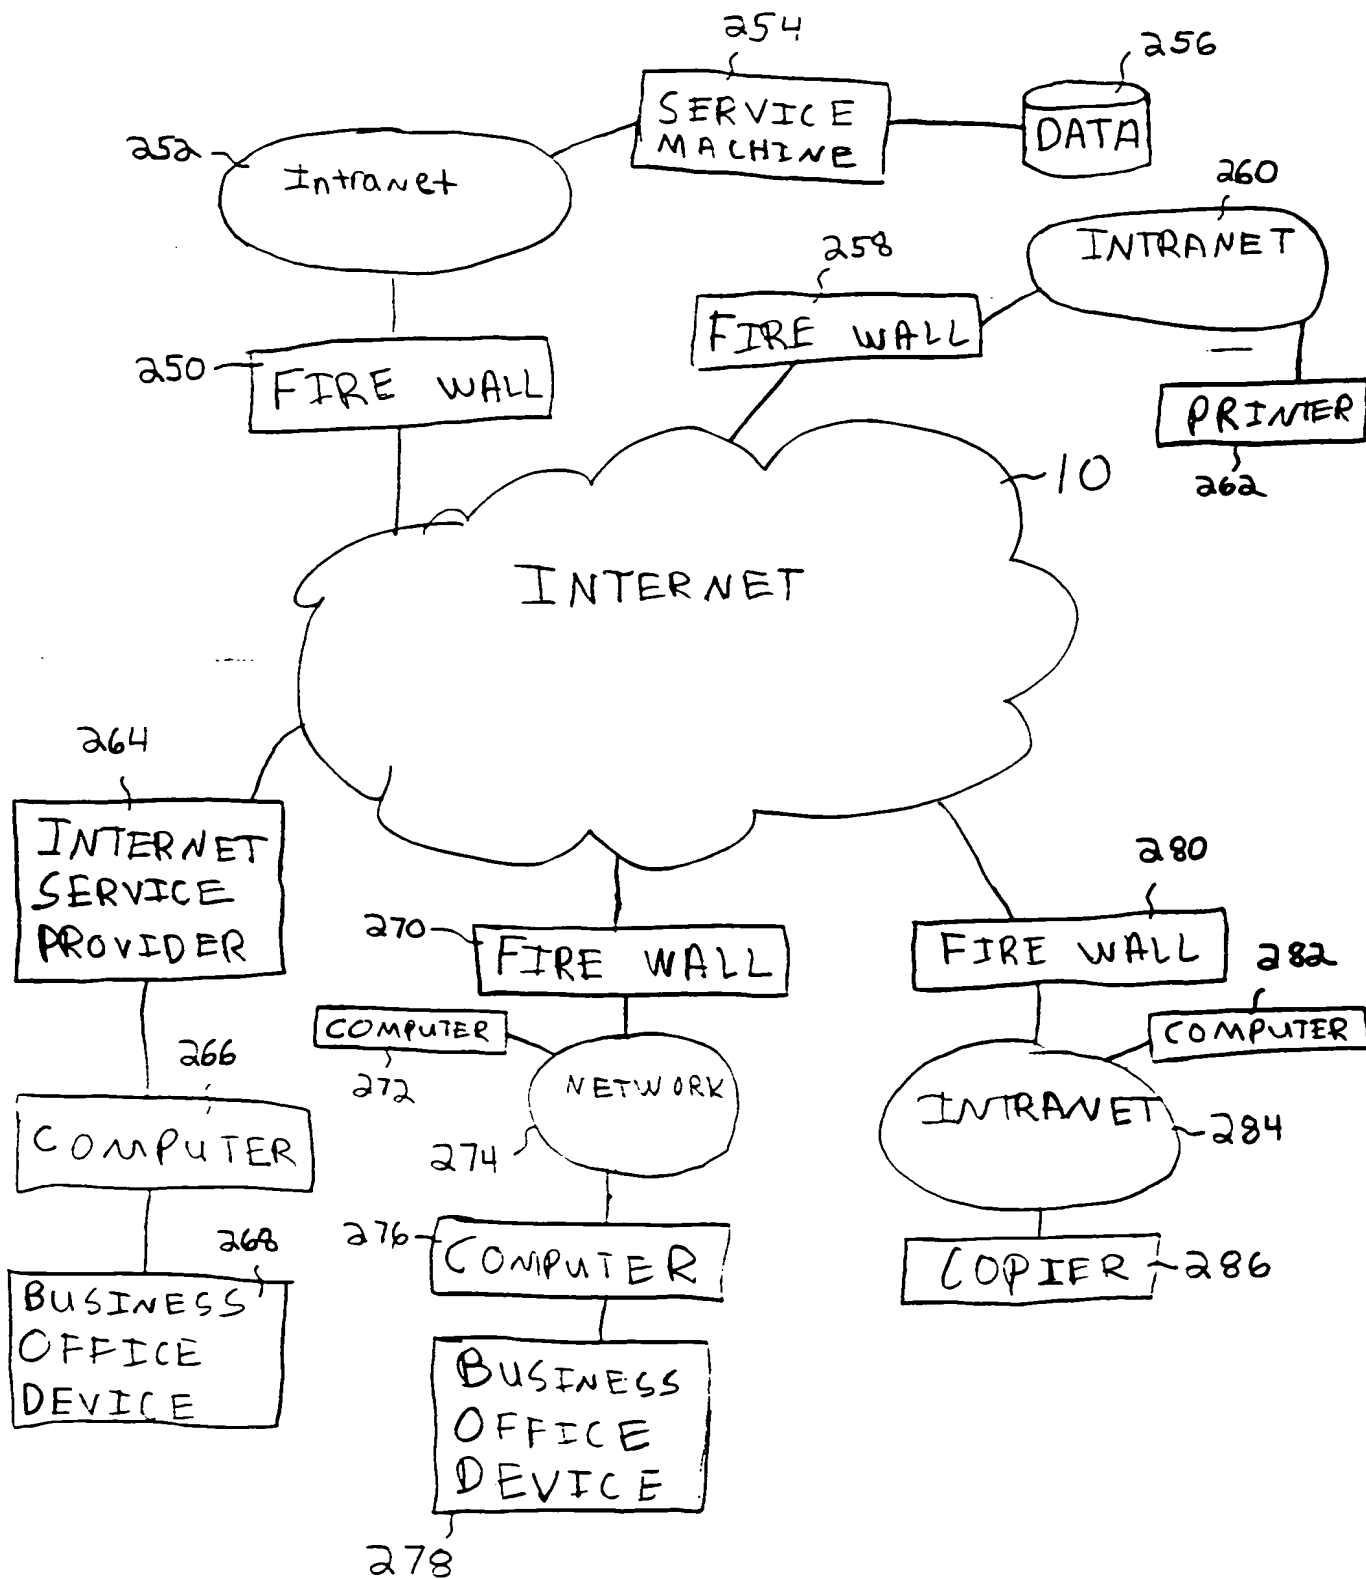 254
256
SERVICE
MACHINE
DATA
252
Intranet
260
INTRANET
258
FIRE WALL
250
FIRE WALL
PRINTER
262
10
INTERNET
264
INTERNET
SERVICE
PROVIDER
280
270
FIRE WALL
FIRE WALL
282
COMPUTER
COMPUTER
266
272
NETWORK
INTRANET
COMPUTER
274
284
268
276
COMPUTER
COPIER
286
BUSINESS
OFFICE
DEVICE
BUSINESS
OFFICE
DEVICE
278